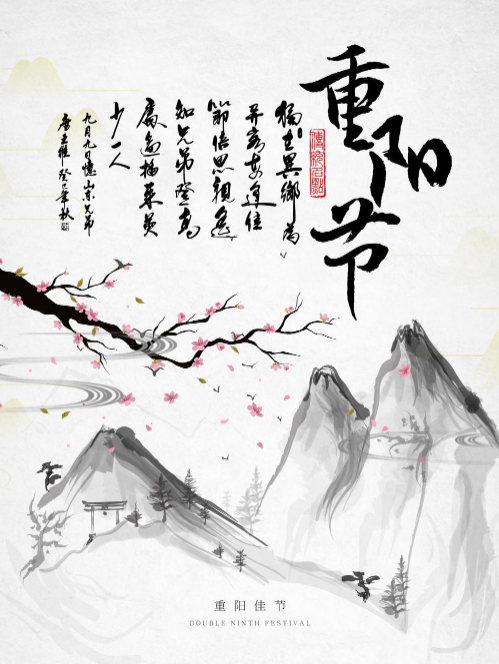 重阳节
獨在異鄉為
异客每逢佳
節倍思親遙
知兄弟登高
處遍插茱萸
少一人
九月九日憶山東兄弟
唐王維 癸巳年秋
重阳佳节
DOUBLE NINTH FESTIVAL